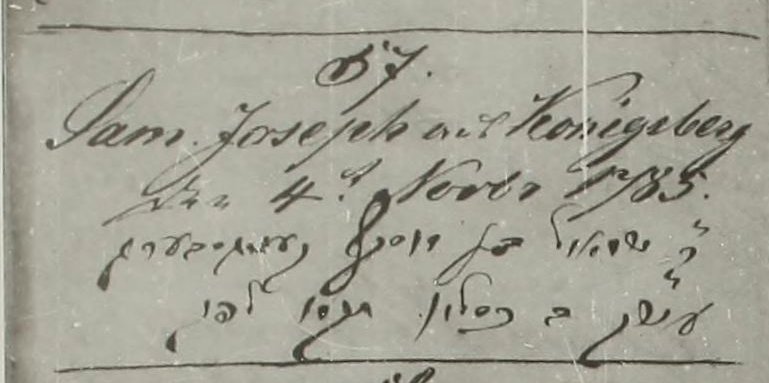 57.
Sam. Joseph aus Königsberg
den 4t Novbr 1785.
ר' שמואל בן יוסף קעניגסבערג
עש"ק ב כסליו תקמו לפק